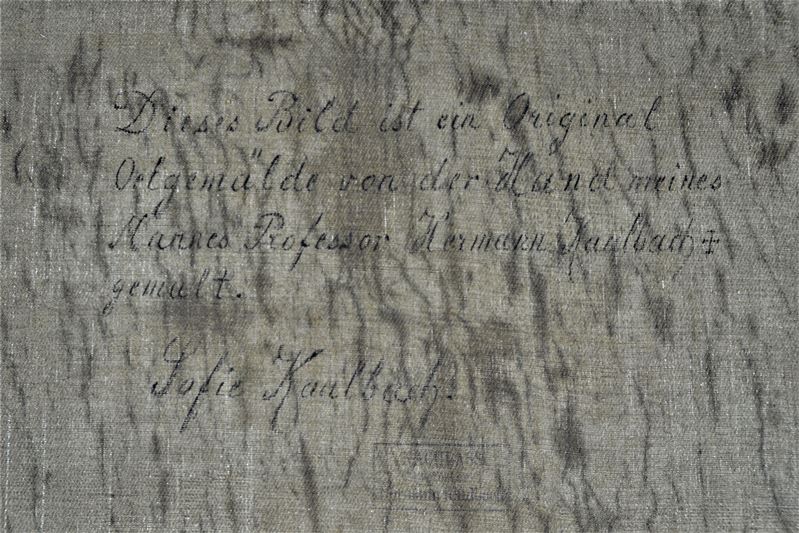 Dieses Bild ist ein Original
Oelgemälde von der Hand meines
Mannes Professor Hermann Kaulbach ‡
gemalt.
Sofie Kaulbach.
NACHLASS